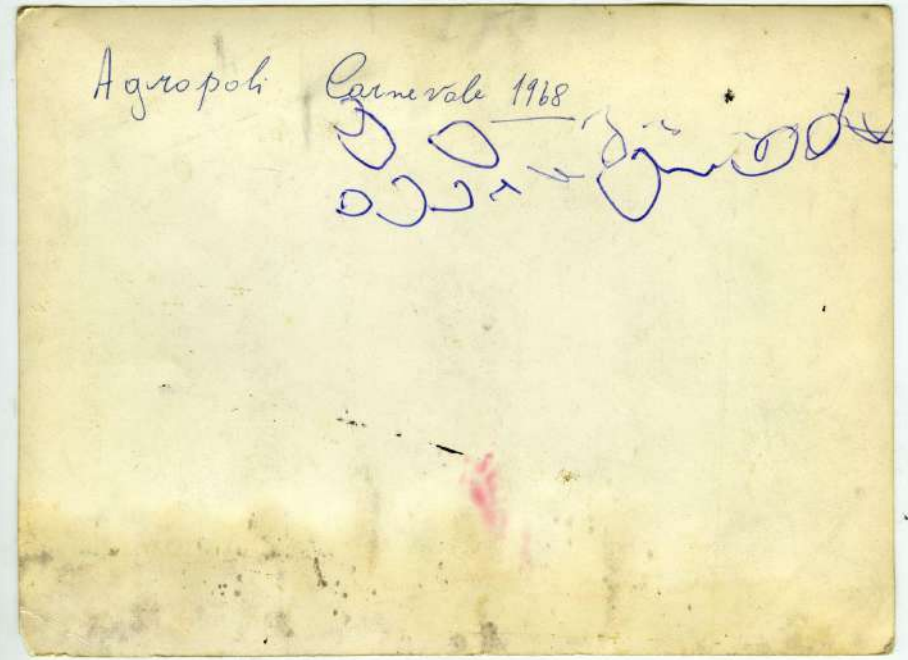 Agropoli Carnevale 1968